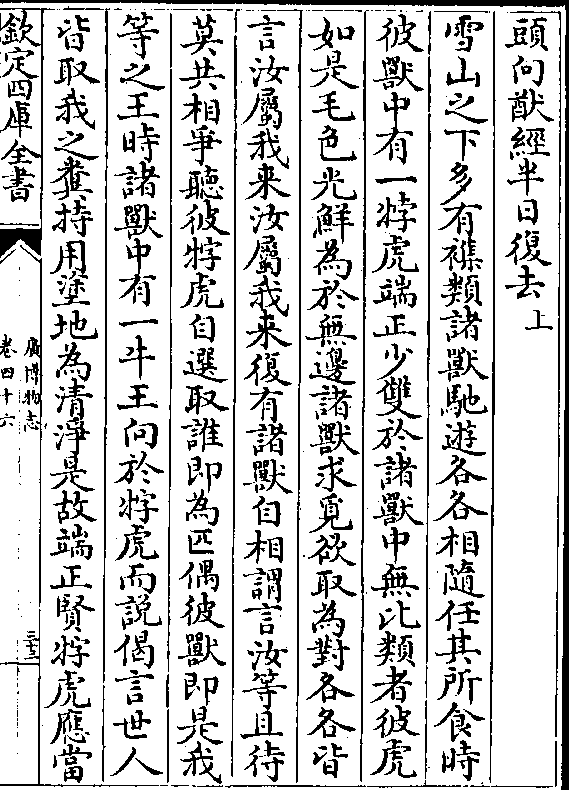 頭向猷經半日復去上
雪山之下多有襍類諸獸馳遊各各相隨任其所食時
彼獸中有一牸虎端正少雙於諸獸中無比類者彼虎
如是毛色光鮮為於無邊諸獸求覓欲取為對各各皆
言汝屬我来汝屬我来復有諸獸自相謂言汝等且待
莫共相爭聽彼牸虎自選取誰即為匹偶彼獸即是我
等之王時諸獸中有一牛王向於牸虎而說偈言世人
皆取我之糞持用塗地為清淨是故端正賢牸虎應當
欽定四庫全書
廣博物志
卷四十六
三十三